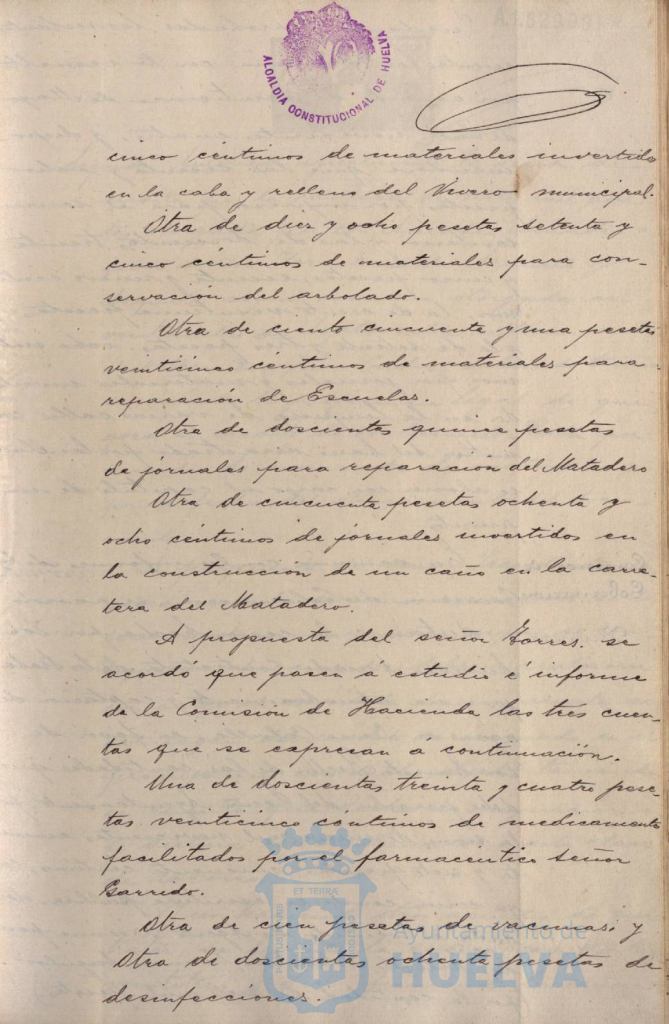 ALCALDIA CONSTITUCIONAL DE HUELVA
cinco céntimos de materiales invertido
en la caba y relleno del Vivero municipal.
Otra de diez y ocho pesetas setenta y
cinco céntimos de materiales para con-
servación del arbolado.
Otra de ciento cincuenta y una pesetas
veinticinco céntimos de materiales para
reparación de Escuelas.
Otra de doscientas quince pesetas
de jornales para reparación del Matadero
Otra de cincuenta pesetas ochenta y
ocho céntimos de jornales invertidos en
la construcción de un caño en la carre-
tera del Matadero.
A propuesta del señor Garres. se
acordó que pasen á estudio é informe
de la Comisión de Hacienda las tres cuen-
tas que se expresan á continuación.
Una de doscientas treinta y cuatro pese-
tas veinticinco céntimos de medicamento
facilitados por el farmacéutico señor
Garrido.
Otra de cien pesetas de vacunas; y
Otra de doscientas ochenta pesetas de
desinfecciones.
ET TERRAE
Ayuntamiento de
HUELVA